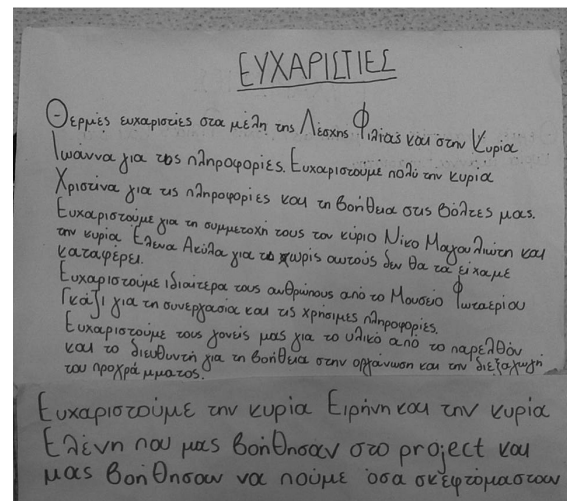 ΕΥΧΑΡΙΣΤΙΕΣ
Θερμές ευχαριστίες στα μέλη της Λέσχης Φιλίας και στην Κυρία
Ιωάννα για τις πληροφορίες. Ευχαριστούμε πολύ την κυρία
Χριστίνα για τις πληροφορίες και τη βοήθεια στις βόλτες μας.
Ευχαριστούμε για τη συμμετοχή τους τον κύριο Νίκο Μαγουλιώτη και
την κυρία Έλενα Ακύλα για χωρίς αυτούς δεν θα τα είχαμε
καταφέρει.
Ευχαριστούμε ιδιαίτερα τους ανθρώπους από το Μουσείο Φωταερίου
Γκάζι για τη συνεργασία και τις χρήσιμες πληροφορίες.
Ευχαριστούμε τους γονείς μας για το υλικό από το παρελθόν
και το διευθυντή για τη βοήθεια στην οργάνωση και την διεξαγωγή
του προγράμματος.
Ευχαριστούμε την κυρία Ειρήνη και την κυρία
Ελένη που μας βοήθησαν στο project και
μας βοήθησαν να πούμε όσα σκεφτόμασταν